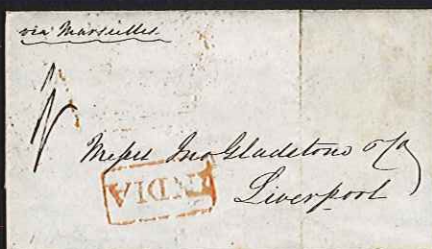 via Marseilles
Messrs Jno Gladstone & Co
Liverpool
INDIA